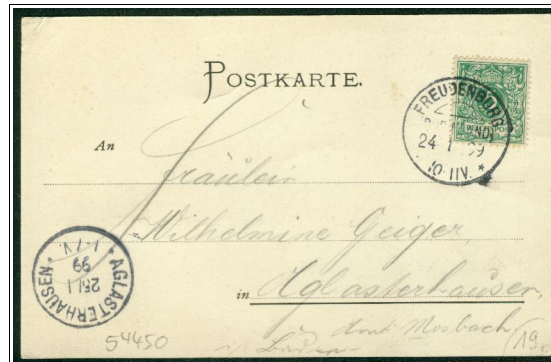 POSTKARTE.
FREUDENBURG
24 1 99
10-11V.
An
Fräulein
Wilhelmine Geiger
in Aglasterhausen.
Amt Mosbach
in Baden
AGLASTERHAUSEN.
25 1
99
54450
19.